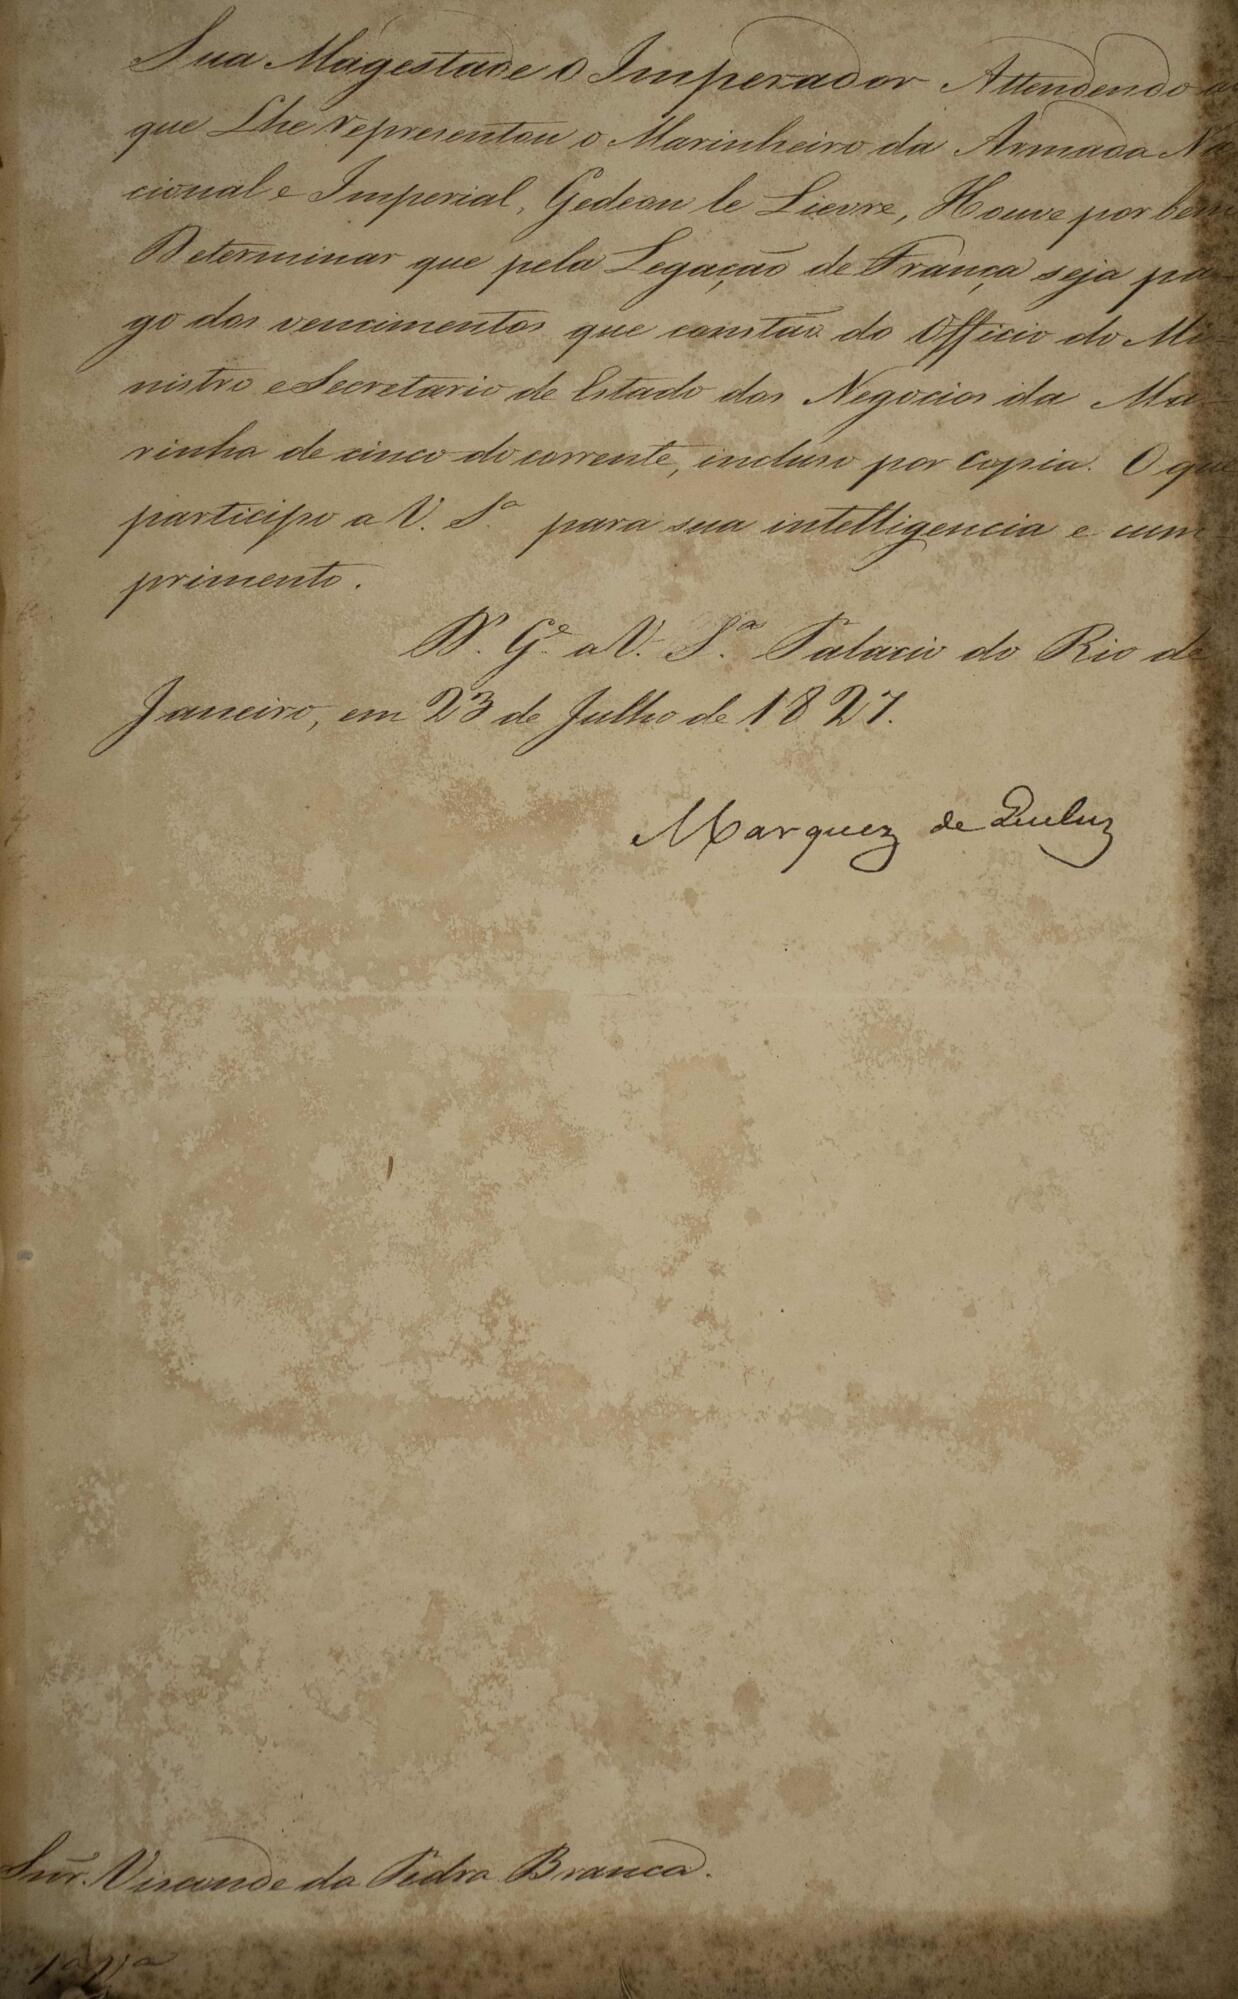 Sua Magestade O Imperador Attendendo ao
que Lhe representou o Marinheiro da Armada Na-
cional e Imperial, Gedeon le Lievre, Houve por bem
Determinar que pela Legação de França seja pa-
go dos vencimentos que constão do Officio do Mi-
nistro e Secretario de Estado dos Negocios da Ma-
rinha de cinco do corrente, incluso por copia. O que
participo a V. Sª para sua intelligencia e cum-
primento.
Ds. Ge. a V. Sª. Palacio do Rio de
Janeiro, em 23 de Julho de 1827.
Marquez de Queluz
Snr. Visconde da Pedra Branca.
1ª Vª